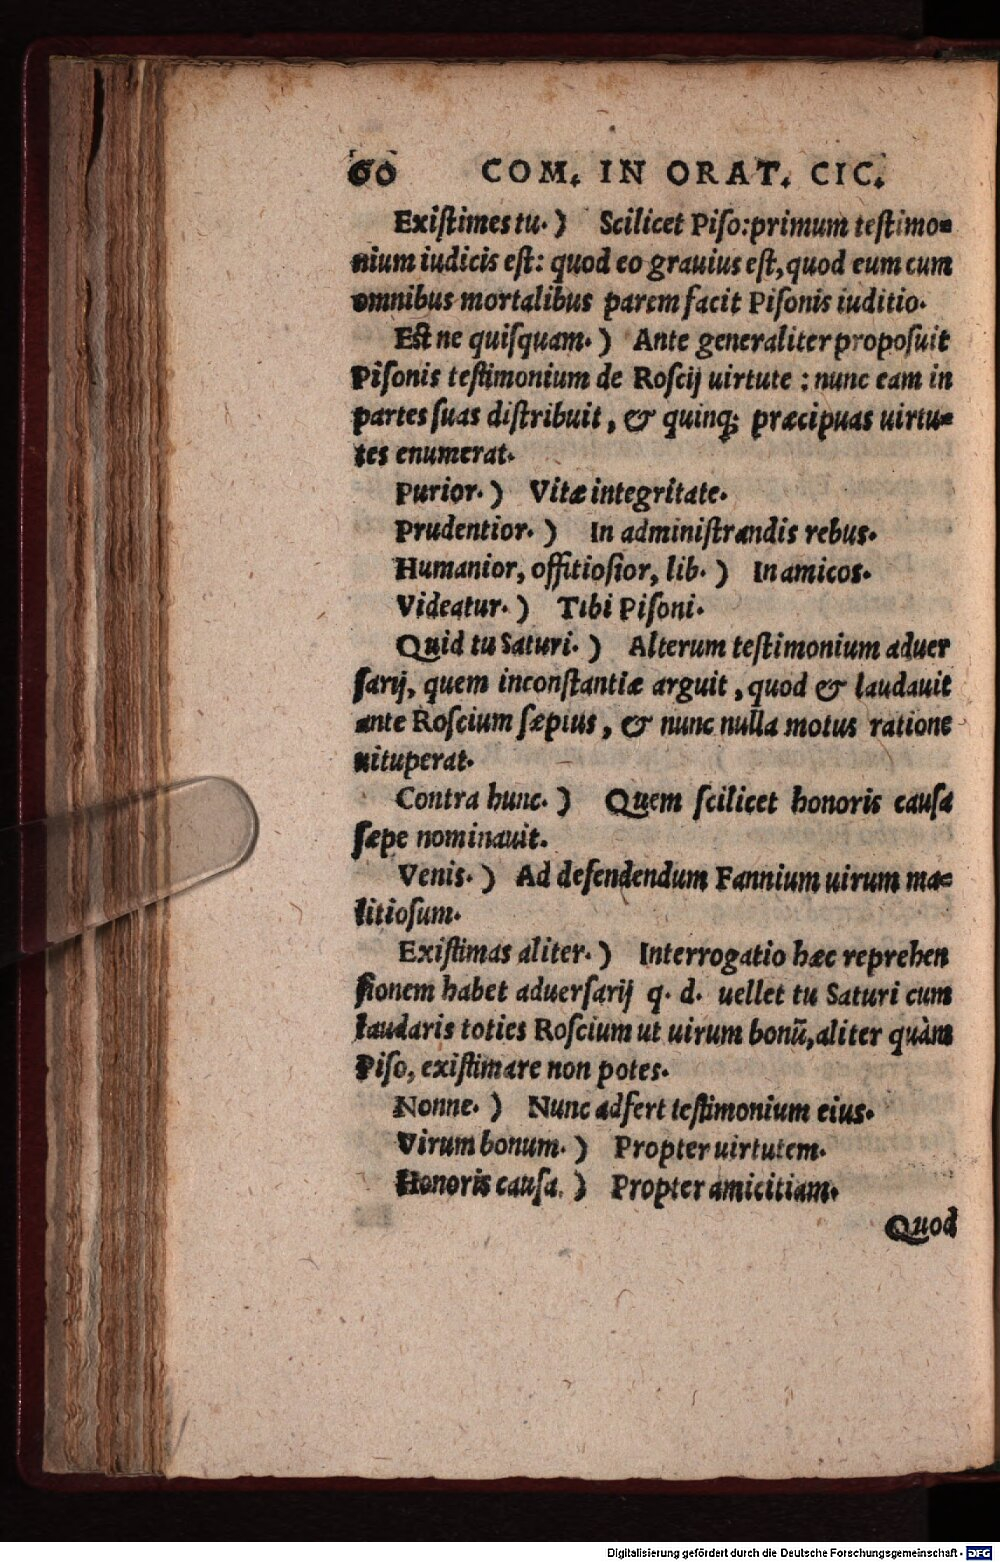 60 COM. IN ORAT. CIC.
Exiſtimes tu. ) Scilicet Piſo: primum teſtimo=
nium iudicis eſt: quod eo grauius eſt, quod eum cum
omnibus mortalibus parem facit Piſonis iuditio.
Eſt ne quiſquam. ) Ante generaliter propoſuit
Piſonis teſtimonium de Roſcij uirtute : nunc eam in
partes ſuas diſtribuit, & quinq; præcipuas uirtu=
tes enumerat.
Purior. ) Vitæ integritate.
Prudentior. ) In adminiſtrandis rebus.
Humanior, offitioſior, lib. ) In amicos.
Videatur. ) Tibi Piſoni.
Quid tu Saturi. ) Alterum teſtimonium aduer
ſarij, quem inconſtantiæ arguit, quod & laudauit
ante Roſcium ſæpius, & nunc nulla motus ratione
uituperat.
Contra hunc. ) Quem ſcilicet honoris cauſa
ſæpe nominauit.
Venis. ) Ad defendendum Fannium uirum ma=
litioſum.
Exiſtimas aliter. ) Interrogatio hæc reprehen
ſionem habet aduerſarij q. d. uellet tu Saturi cum
laudaris toties Roſcium ut uirum bonū, aliter quàm
Piſo, exiſtimare non potes.
Nonne. ) Nunc adfert teſtimonium eius.
Virum bonum. ) Propter uirtutem.
Honoris cauſa. ) Propter amicitiam.
Quod
Digitalisierung gefördert durch die Deutsche Forschungsgemeinschaft - DFG